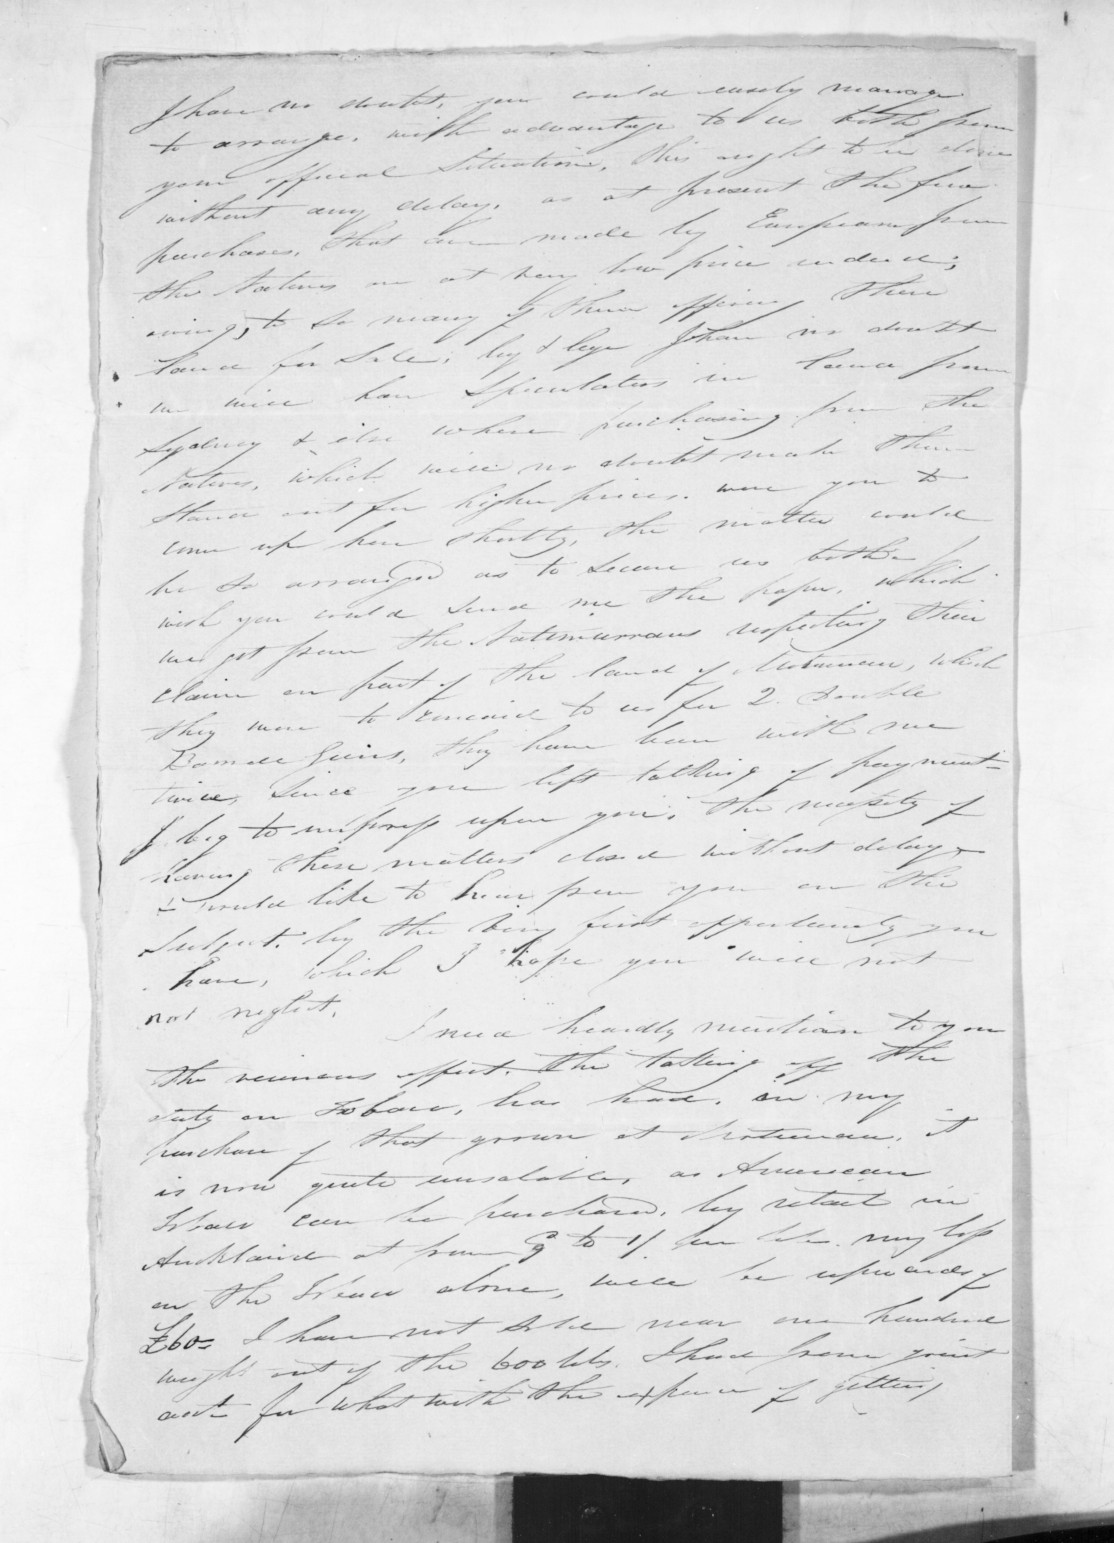 I have no doubt, you could easily manage
to arrange, with advantage to us both from
your official Situation, this ought to be done
without any delay, as at present the few
purchases, that are made by Europeans from
the Natives are at very low price indeed,
owing, to so many of them offering their
Land for Sale; by & bye I have no doubt
we will have Speculators in Land from
Sydney & else where purchasing from the
Natives, which will no doubt make them
stand out for higher prices. were you to
come up here shortly, the matter could
be so arranged as to secure us both. I
wish you could send me the paper, which
we got from the respecting their
claim on part of the land of Motueka, which
they were to to us for 2 Double
Guns, they have been with me
twice, since you left talking of payment
I beg to impress upon you, the necessity of
having these matters closed without delay
& would like to hear from you on the
Subject, by the very first opportunity you
have, which I hope you will not
not neglect.
I need heardly mention to you
the ruinous effect, the taking off the
duty on Tobaco, has had, on my
purchase of that grown at it
is now quite unsalable, as American
Tobaco can be purchased, by retail in
Auckland at from 9 to 1/ per lb. my loss
on the Tobaco alone, will be upwards of
£60= I have not sold near one hundred
weight out of the 600 lbs. I had from
for what with the expence of getting